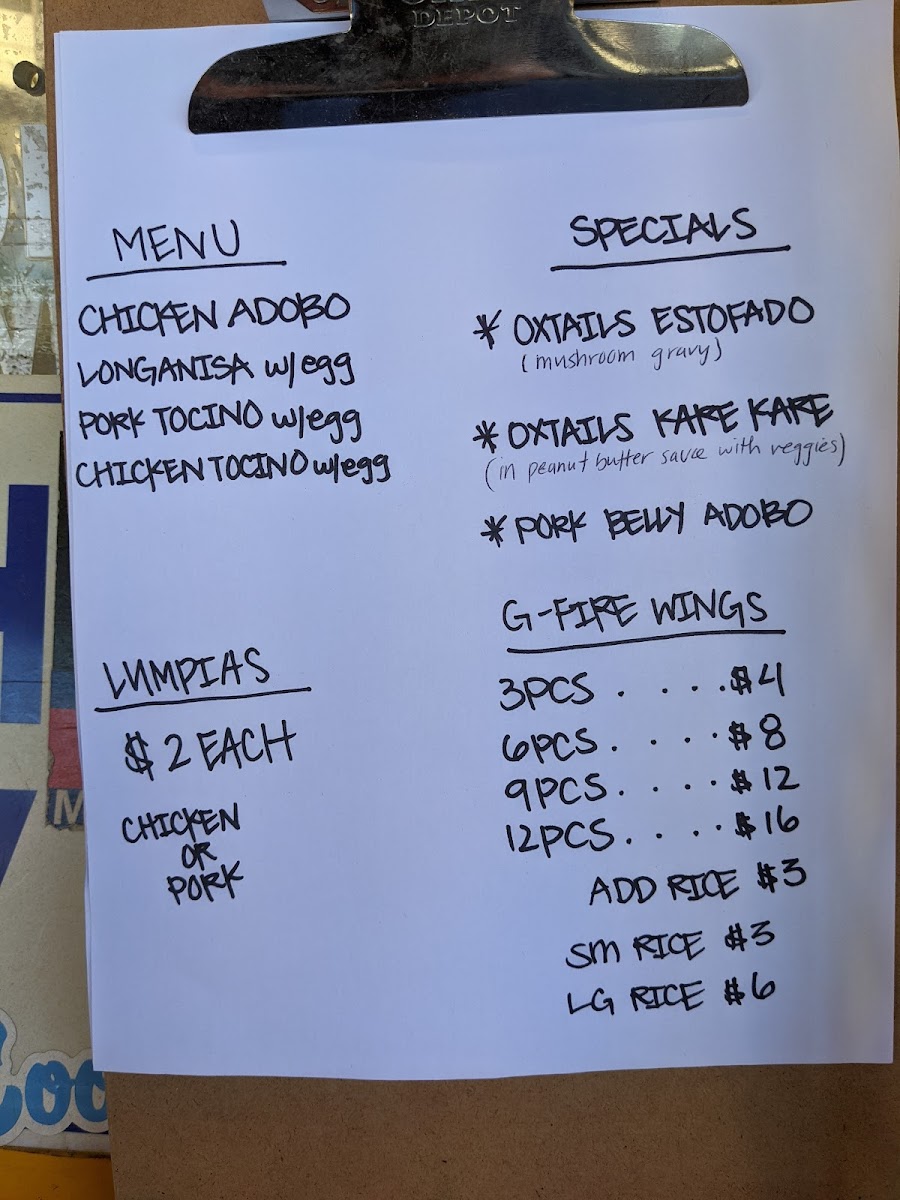 DEPOT
MENU
CHICKEN ADOBO
LONGANISA w/egg
PORK TOCINO w/egg
CHICKEN TOCINO w/egg
LUMPIAS
$2 EACH
CHICKEN
OR
PORK
SPECIALS
* OXTAILS ESTOFADO
(mushroom gravy)
* OXTAILS KARE KARE
(in peanut butter sauce with veggies)
* PORK BELLY ADOBO
G-FIRE WINGS
3PCS . . . . . $4
6PCS . . . . . $8
9PCS . . . . . $12
12PCS . . . . . $16
ADD RICE $3
SM RICE $3
LG RICE $6